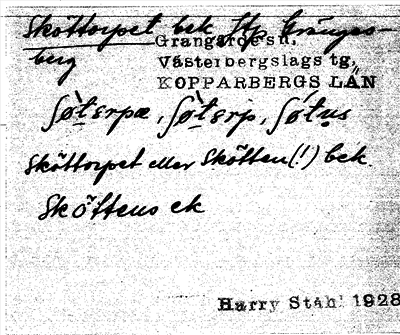 Sköttorpet bek. Stp. Gränges-
berg
Grangärde sn.
Västerbergslags tg,
KOPPARBERGS LÄN
ʃøtərpæ, ʃøtərp, ʃøtus
Sköttorpet eller Skötten(!) bek.
Sköttens ek
Harry Ståhl 1928